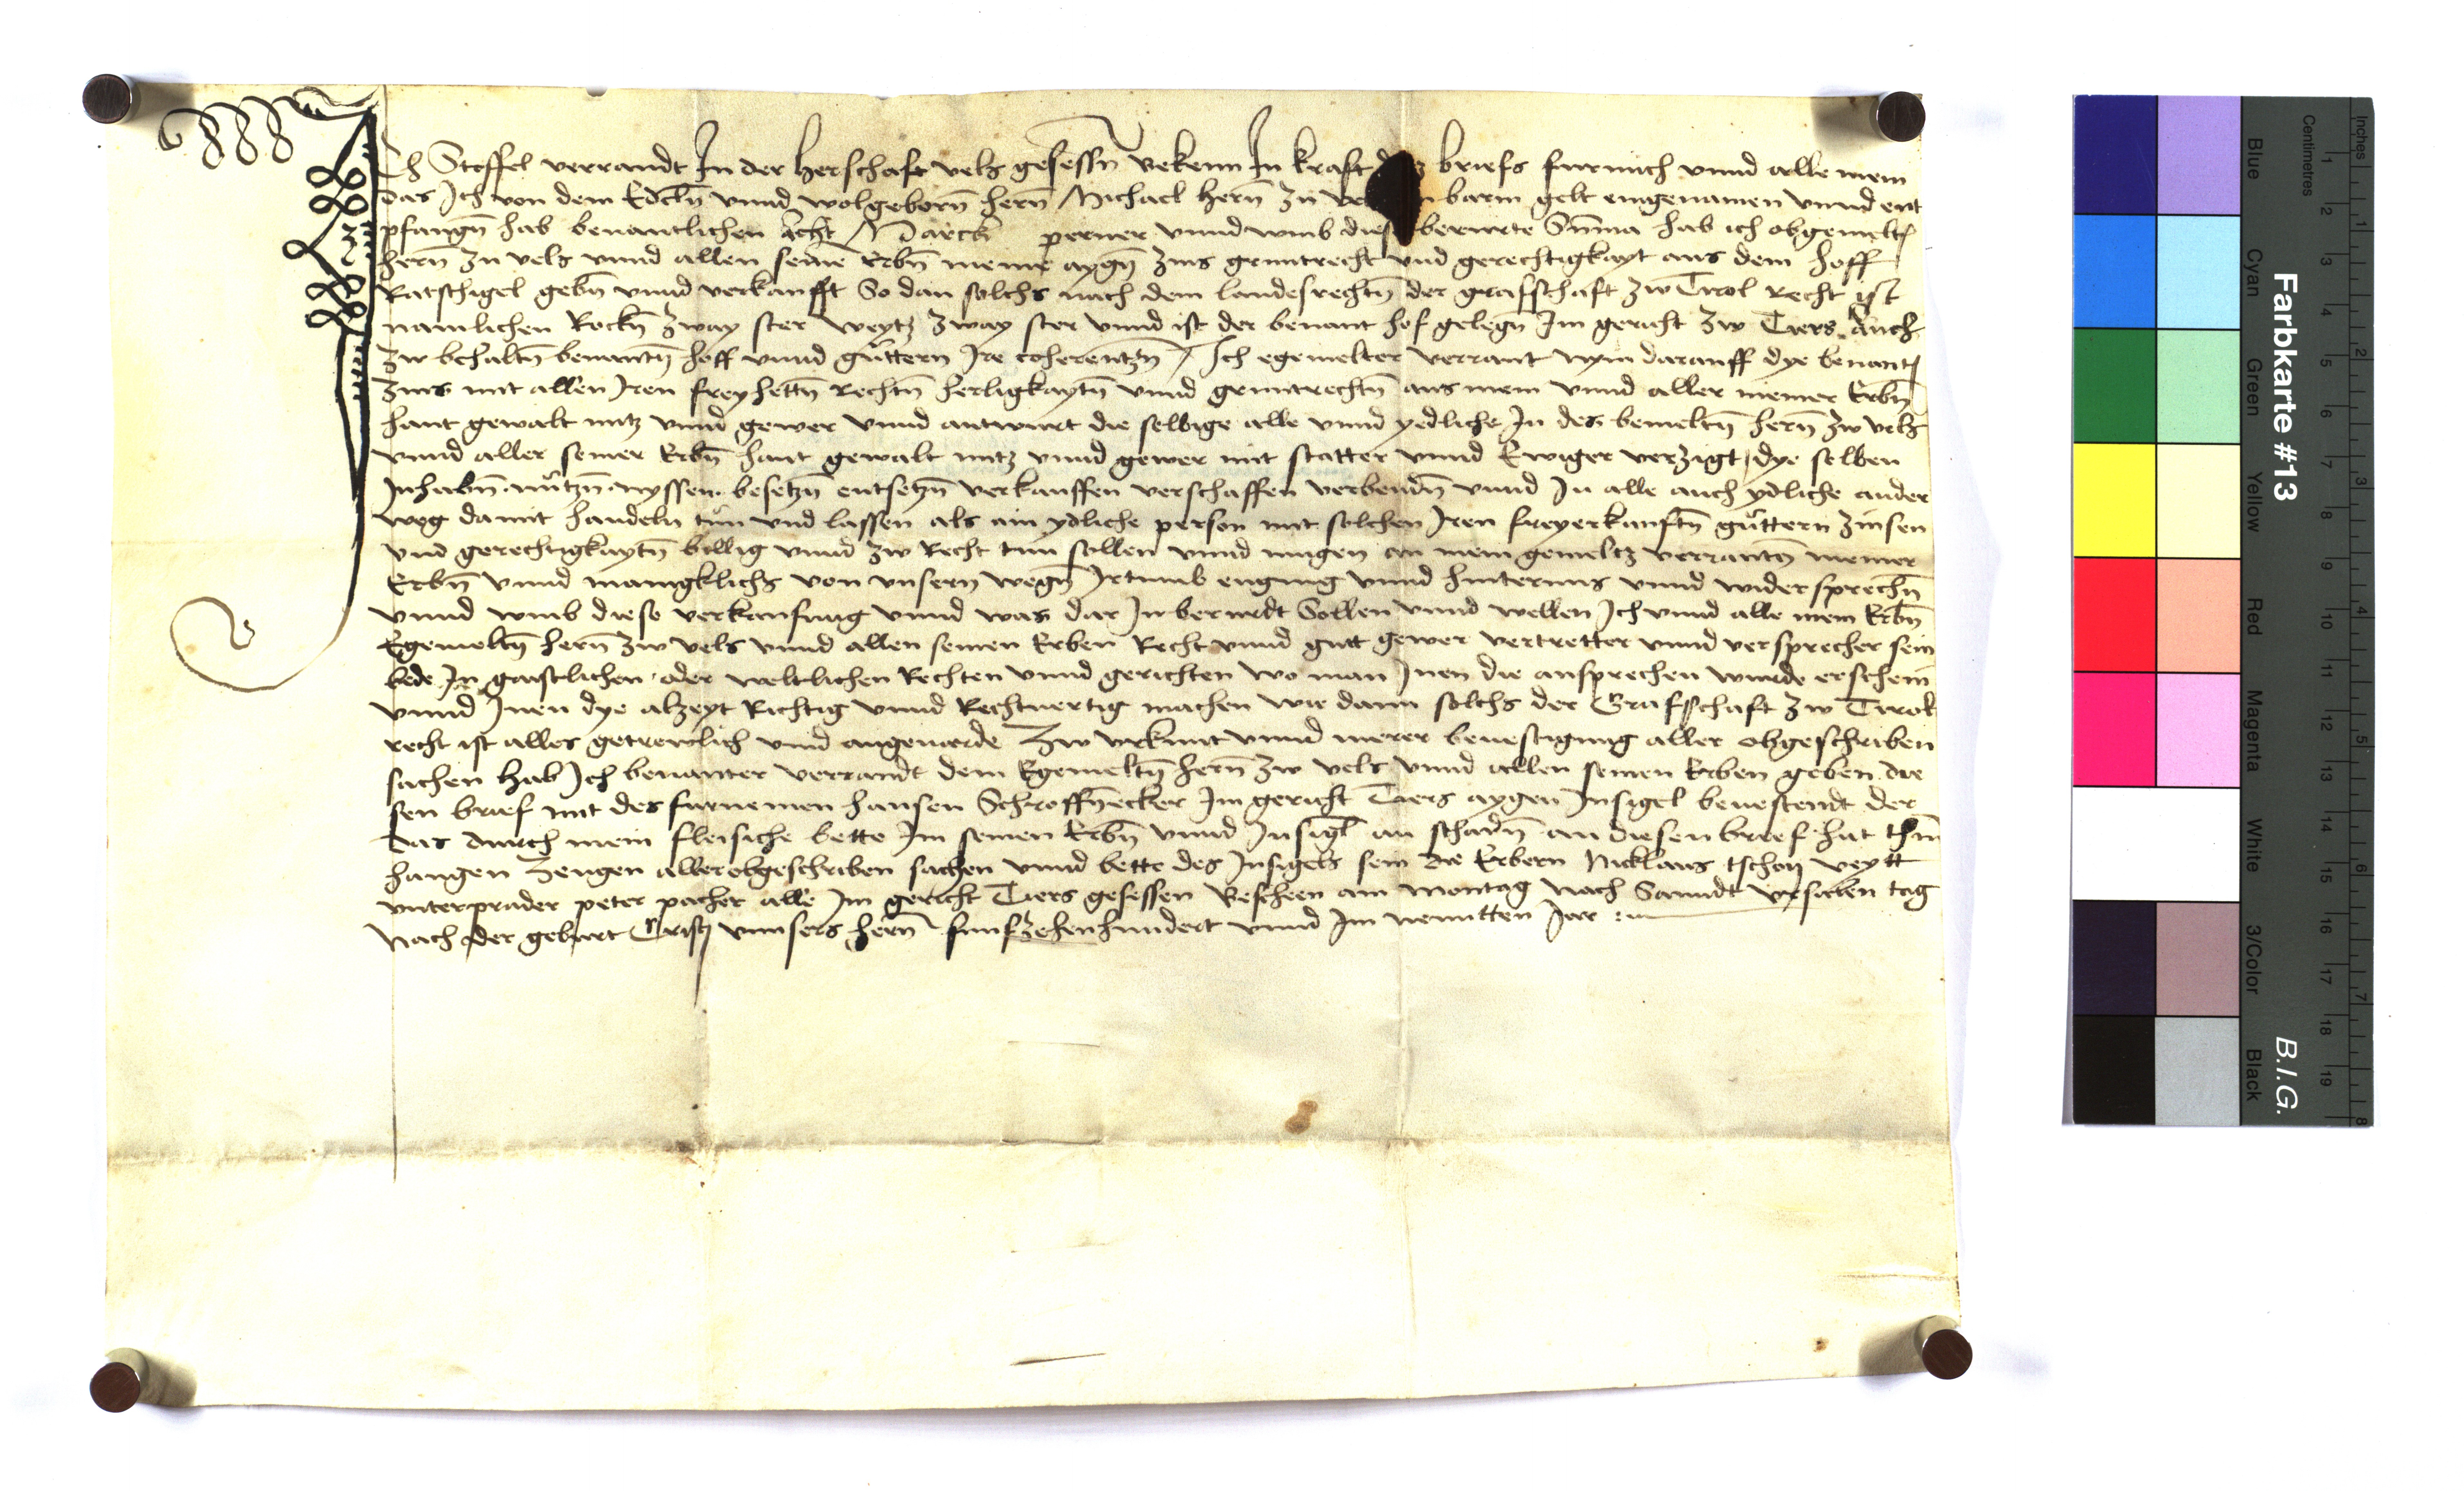 Ich Stoffel verrandt In der herschaft vels gesessn̄ bekenn In kraft briefs fur mich vnnd alle mein
das Ich von dem Edeln̄ vnnd wolgeborn̄ hern̄ Michael hern̄ zu barm gelt eingenamen vnnd ent
pfangn̄ hab benantlichen acht Marck perner vnnd vmb diese berurte Sūma hab ich obgemelt
hern̄ zu vels vnnd allen seinē Erbn̄ meine aygn̄ zins gruntrecht vnd gerechtigkayt aus dem hoff
Ratschigel gebn̄ vnnd verkaufft So dan solchs nach dem landesrechtn̄ der grafschaft zw Tirol Recht ist
namlichen Rockn̄ zway ster weytz zway ster vnnd ist der benant hof gelegn̄ Im gericht zw Tiers auch
zw behaltn̄ benantn̄ hoff vnnd guttern Ire coherentzn̄ / Ich egemelter verrant nym darauff dye benant
zins mit allen Iren freyhettn̄ Rechtn̄ herligkaytn̄ vnnd gruntrechtn̄ aus mein vnnd aller meiner Erbn̄
hant gewalt nutz vnnd gewer vnnd antwurt die selbige alle vnnd yedliche In des bemeltn̄ hern̄ zw vels
vnnd aller seiner Erbn̄ hant gewalt nutz vnnd gewer mit statter vnnd Ewiger verzigt / dye selben
Inhabn̄ nutzn̄ nyssen besetzn̄ entsetzn̄ verkauffen verschaffen verbendn̄ vnnd In alle auch ydliche ander
weg damit handeln tun vnd lassen als ain ydliche person mit solchen Iren freyerkauftn̄ guttern zinsen
vnd gerechtigkaytn̄ billig vnnd zw Recht tun sollen vnnd mugen an mein gemeltz verrantn̄ meiner
Erbn̄ vnnd manigklichs von vnsern wegn̄ Irtumb engung vnnd hinternus vnnd widersprechn̄
vnnd vmb diese verkaufung vnnd was dar In berurdt Sollen vnnd wellen Ich vnnd alle mein Erbn̄
Egemeltn̄ hern̄ zw vels vnnd allen seinen Erben Recht vnnd gutt gewer vertretter vnnd versprecher sein
bede In gaistlichen oder weltlichen Rechten vnnd gerichten wo man Inen die ansprechen wurde erschein
vnnd Inen dye alzeyt Richtig vnnd Rechtuertig machen wie dann solchs der Grafschaft zw Tirol
recht ist alles getrewlich vnnd angeuarde Zw vrkunt vnnd merer beuestigung aller obgeschriben
sachen hab Ich benanter verrandt dem Egemeltn̄ hern̄ zw vels vnnd allen seinen Erben geben die
sen brief mit des furnemen hansen Schroffn̄ecker Im gericht Tiers aygen Insigel beuestendt der
das durch mein fleisiche bette Im seinen Erbn̄ vnnd Insigl an schadn̄ an diesen brief hat
hangen Zeugen aller obgeschriben sachen vnnd bette des Insigels sein die Erbern Nicklaus tschon veytt
vnterprader peter pacher alle Im gericht Tiers gesessen Bescheen am montag nach Sanndt vrsulen tag
Nach der geburt Cristj vnnsers hern̄ funfzehenhundert vnnd Im neuntten Jar